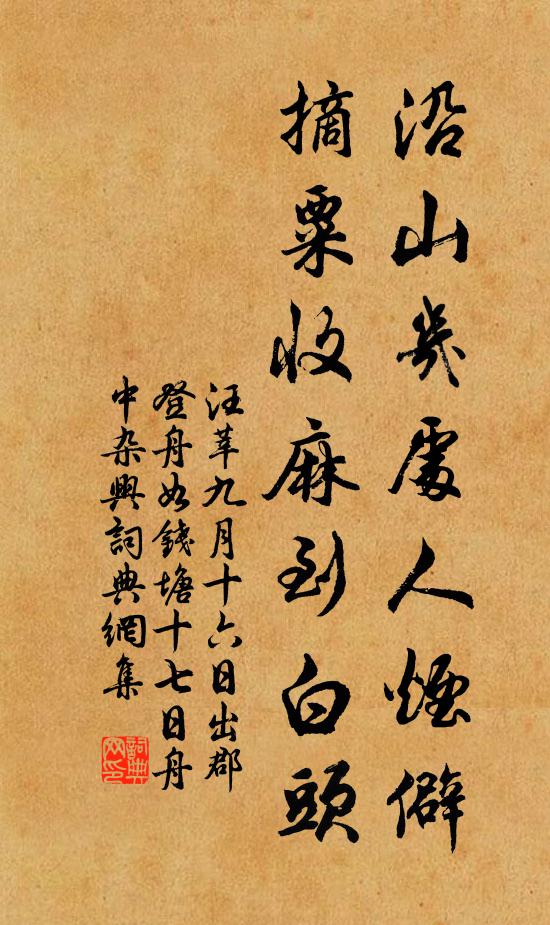 沿山幾處人煙僻
摘粟收麻到白頭
汪莘九月十六日出郡
登舟如錢塘十七日舟
中杂興詞典網集
詞典
网印